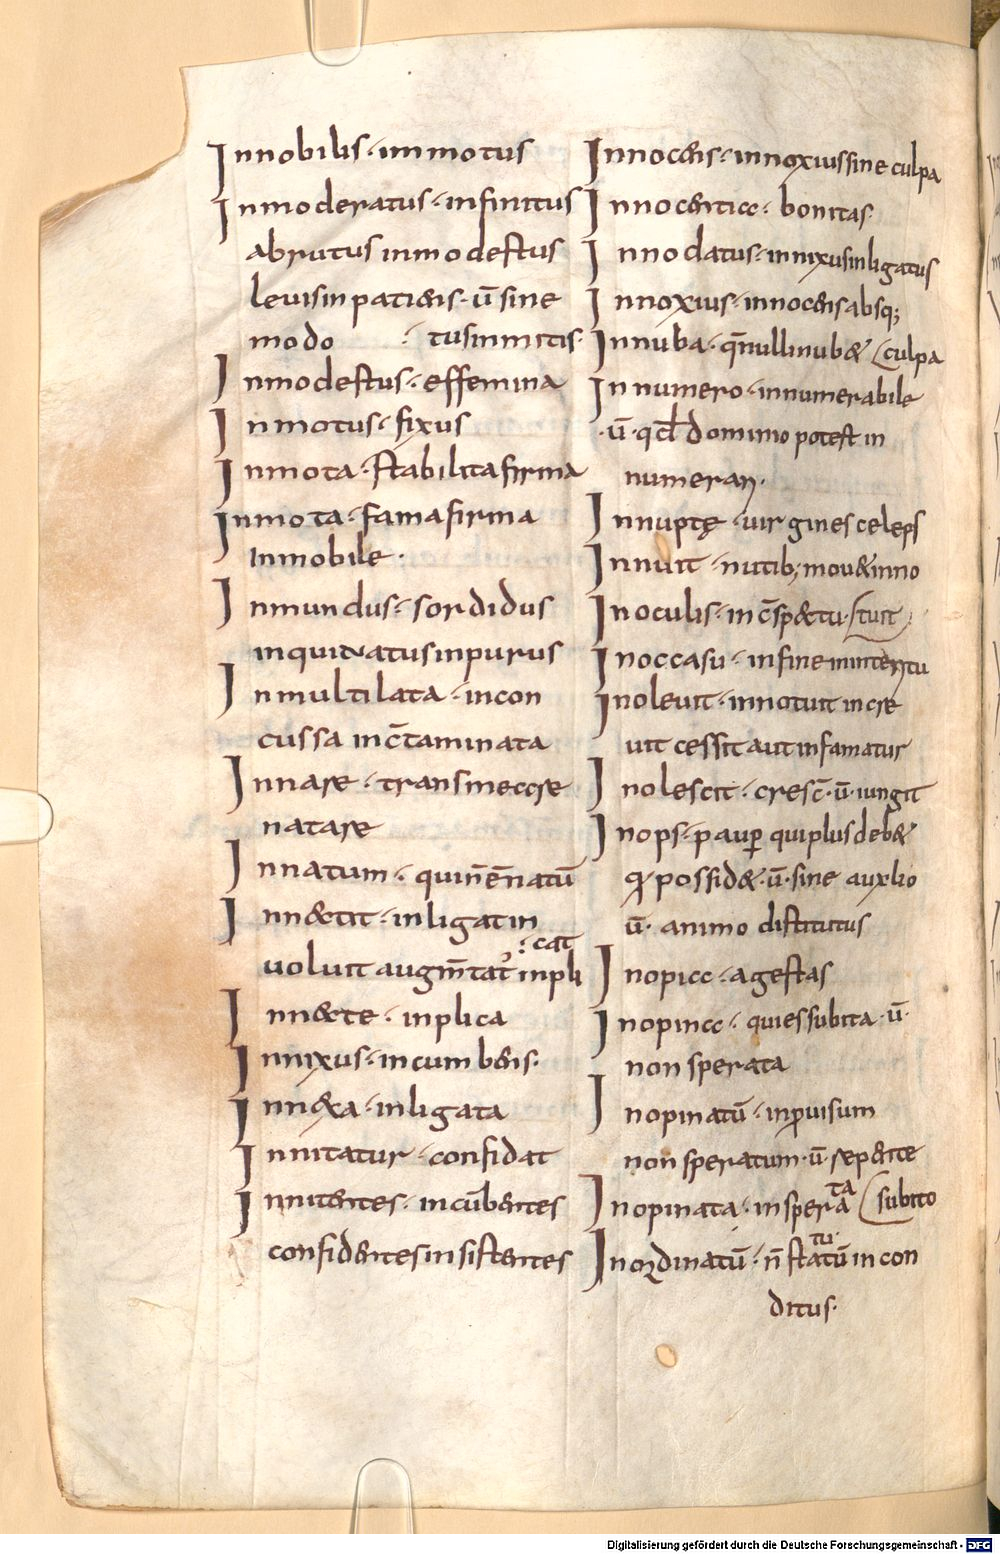 Innobilis · immotus
Inmoderatus · infinitus
abrutus inmodestus
leuis inpatiens · ū sine
modo : tus inmitis ·
Inmodestus · effemina
Inmotus · fixus
Inmota · stabilita firma
Inmota · fama firma
Inmobile ·
Inmundus · sordidus
inquinatus inpurus
Inmultilata · incon
cussa inc̄taminata
Innare · transmeare
natare
Innatum · qui n̄ ē natū
Inn&tit · inligat in
: cat̄
uoluit augm̄tat᷑ inpli
Inn&te · inplica
Innixus · incumbens ·
Inn&xa · inligata
Innitatur · confidat
Innitentes · incūbentes
confidentes insistentes
Innocens · innoxius sine culpa
Innocentia · bonitas ·
Innodatus · innixus inligatus
Innoxius · innocens absq;
Innuba · q̄ nulli nub& (culpa
In numero · innumerabile
· ū · qđ dominio potest in
numerari ·
Innuptę · uirgines celeps
Innuit · nutib; mou& inno
In oculis · in c̄sp&tu · (tuit
In occasu · in fine in interitu
Inoleuit · innotuit incre
uit cessit aut infamatur
Inolescit · cresc̄ · ū · iungit
Inops · pauꝑ qui plus deb&
ꝗ possid& · ū · sine auxlio
ū · animo distitutus
Inopia · agestas
Inopina · quies subita · ū ·
non sperata
Inopinatū · inꝓuisum
non speratum · ū · repente
ta
Inopinata · insperata (subito
tu ·
Inordinatū · n̄ statū incon
ditus ·
Digitalisierung gefördert durch die Deutsche Forschungsgemeinschaft - DFG